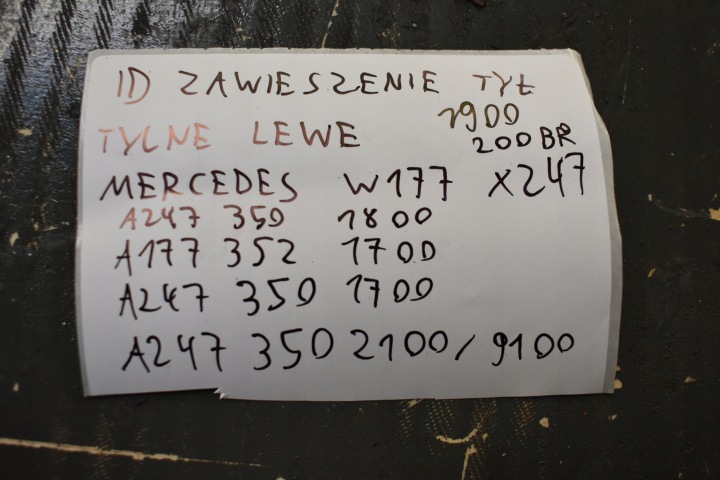 ID ZAWIESZENIE TYŁ
1900
TYLNE LEWE 200BR
MERCEDES W177 X247
A247 350 1800
A177 352 1700
A247 350 1700
A247 350 2100/9100